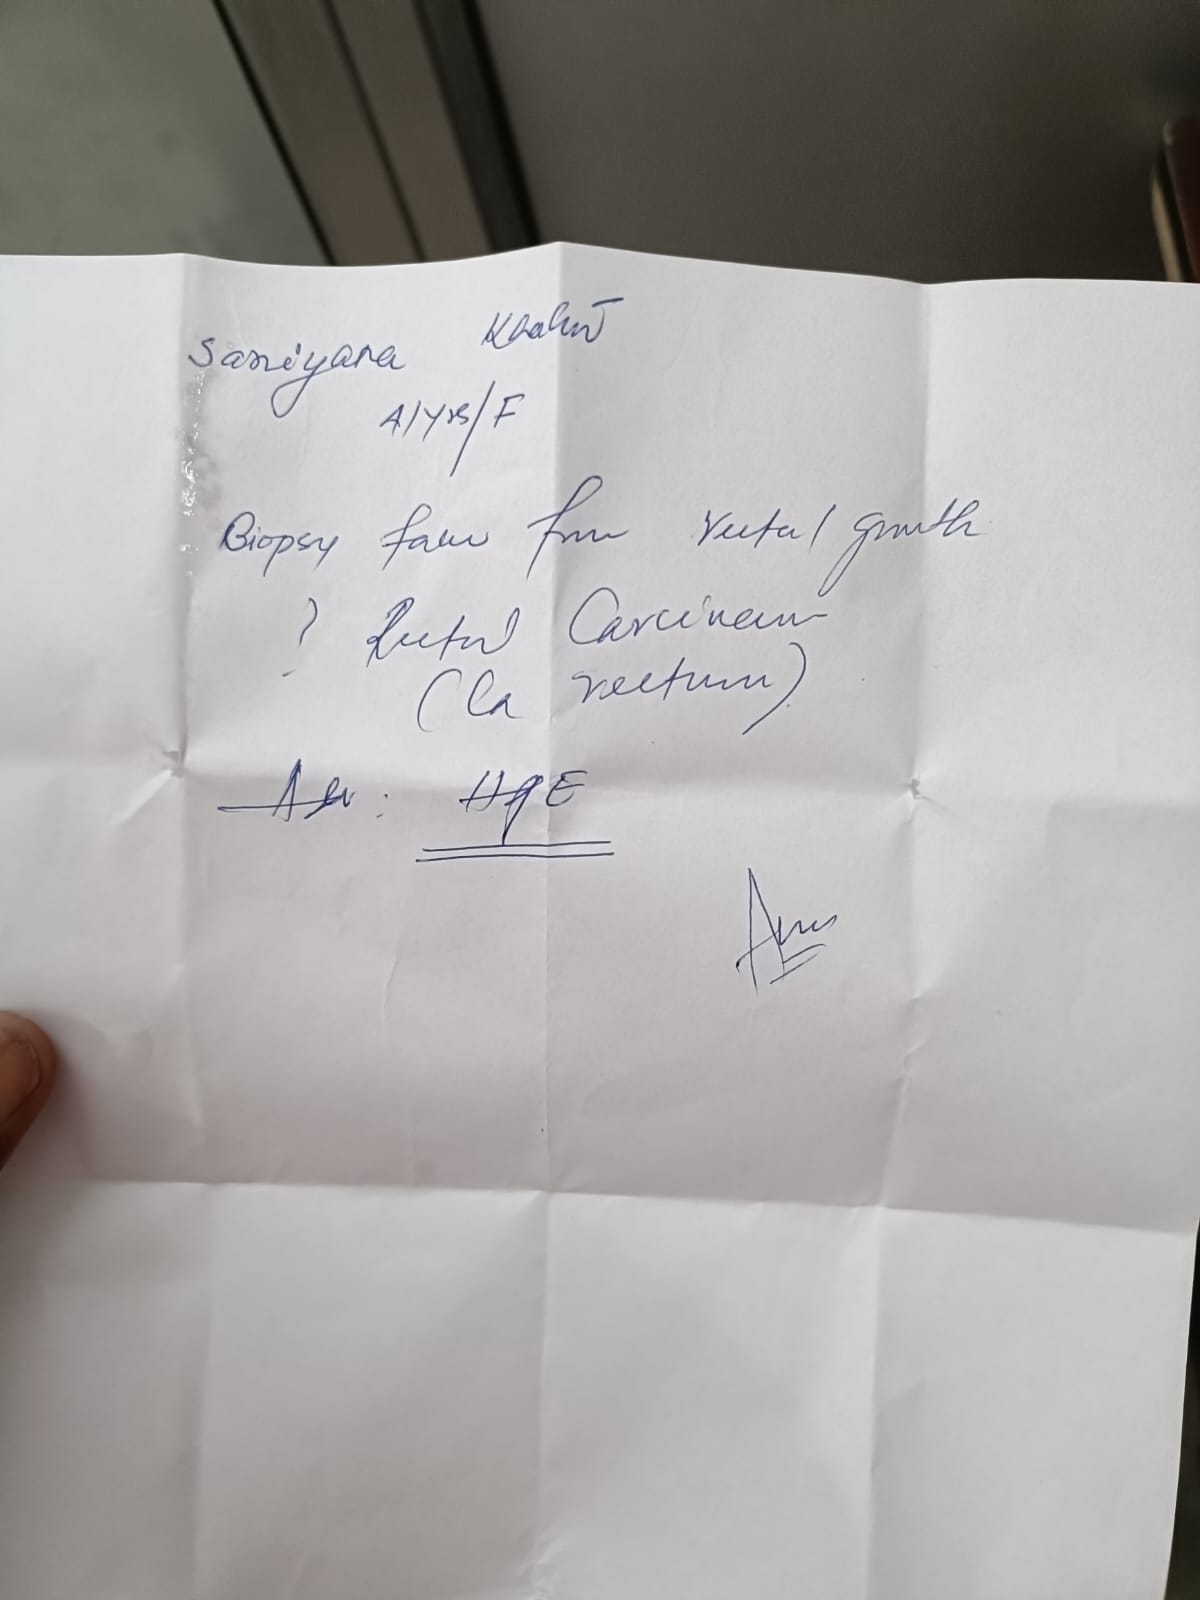 Samiyana
41yrs/F
Biopsy taken from rectal growth
? Rectal Carcinoma
(Ca rectum)
Adv: HPE